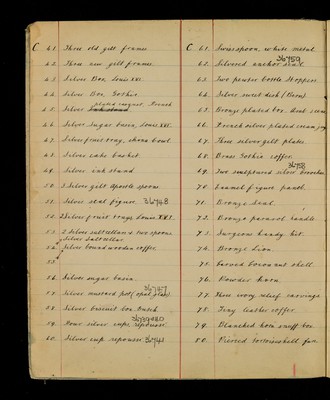 C. 41. Three old gilt frames
42. Three new gilt frames
43. Silver Box, Louis XVI.
44. Silver Box, Gothic
plated inkpot, French
45. Silver Ink stand
46. Silver Sugar basin, Louis XVI.
47. Silver fruit tray,
48. Silver cake basket
49. Silver ink stand
50. 3 Silver gilt Apostle spoons
51. Silver seal figure 36748
52. 2 Silver fruit trays Louis XVI.
53. 2 Silver saltcellars & two spoons
Silver Saltcellar
54. Silver bound wooden coffer
55.
56. Silver sugar basin
36757
57. Silver mustard pot (opal glass)
58. Silver biscuit box Dutch
59. Four silver cups repousse
60. Silver cup repousse 36741
C. 61. Swiss spoon, white metal
36759
62. Silvered anchor seal
63. Two pewter bottle stoppers
64. Silver sweet dish (Bern)
65. Bronze plated box.
66. French silver plated cream jug
67. Three silver gilt plates
68. Brass Gothic coffer
36758
69. Two sculptured silver brooches
70. Enamel figure panel
71. Bronze Seal
72. Bronze parasol handle
73. Surgeons handy kit
74. Bronze Lion
75. Carved Cocoanut shell
76. Powder horn
77. Three ivory relief carvings
78. Tiny leather coffer
79. Blanched horn snuff box
80. Pierced tortoiseshell fan